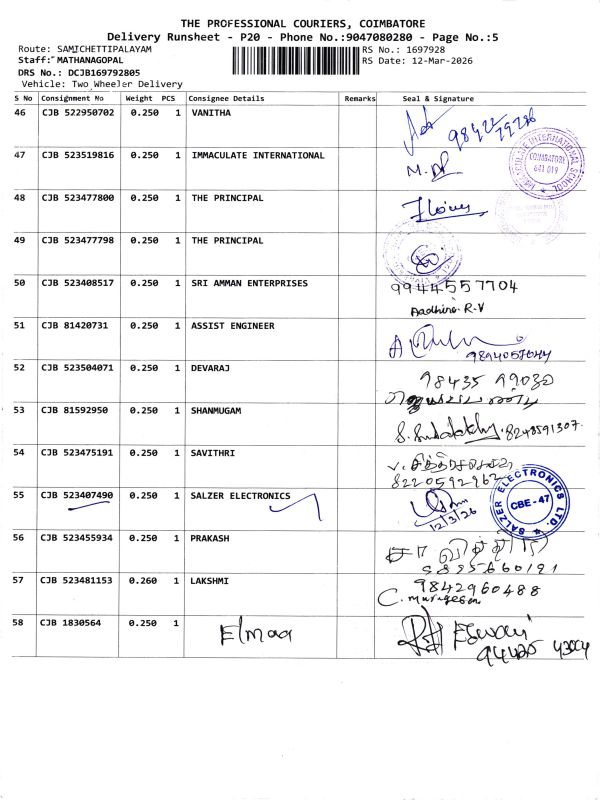 THE PROFESSIONAL COURIERS, COIMBATORE
Delivery Runsheet - P20 - Phone No.:9047080280 - Page No.:5
Route: SAMICHETTIPALAYAM
RS No.: 1697928
Staff: MATHANAGOPAL
RS Date: 12-Mar-2026
DRS No.: DCJB169792805
Vehicle: Two Wheeler Delivery
S No Consignment No Weight PCS Consignee Details Remarks Seal & Signature
46 CJB 522950702 0.250 1 VANITHA
47 CJB 523519816 0.250 1 IMMACULATE INTERNATIONAL
M.
IMMACULATE INTERNATIONAL SCHOOL
COIMBATORE
641 019
48 CJB 523477800 0.250 1 THE PRINCIPAL
49 CJB 523477798 0.250 1 THE PRINCIPAL
50 CJB 523408517 0.250 1 SRI AMMAN ENTERPRISES
9944557704
Aadhira R.V
51 CJB 81420731 0.250 1 ASSIST ENGINEER
9894057044
52 CJB 523504071 0.250 1 DEVARAJ
98435 99030
53 CJB 81592950 0.250 1 SHANMUGAM
8248591307.
54 CJB 523475191 0.250 1 SAVITHRI
8220592962
55 CJB 523407490 0.250 1 SALZER ELECTRONICS
12/3/26
SALZER ELECTRONICS LTD.
CBE-47
56 CJB 523455934 0.250 1 PRAKASH
9895660191
57 CJB 523481153 0.260 1 LAKSHMI
9842960488
C. murugesan
58 CJB 1830564 0.250 1
Elmaa
Eswari
94425 43004